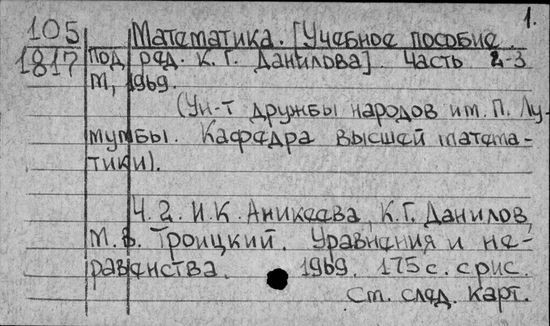 1.
105 Математика. [Учебное пособие.
1817 Под ред. К.Г. Данилова]. Часть 2-3
М, 1969.
(Ун-т дружбы народов им. П. Лу-
мумбы. Кафедра высшей матема-
тики).
Ч. 2. И.К. Аникеева, К.Г. Данилов,
М.В. Троицкий. Уравнения и не-
равенства. 1969. 175 с. с рис.
См. след. карт.